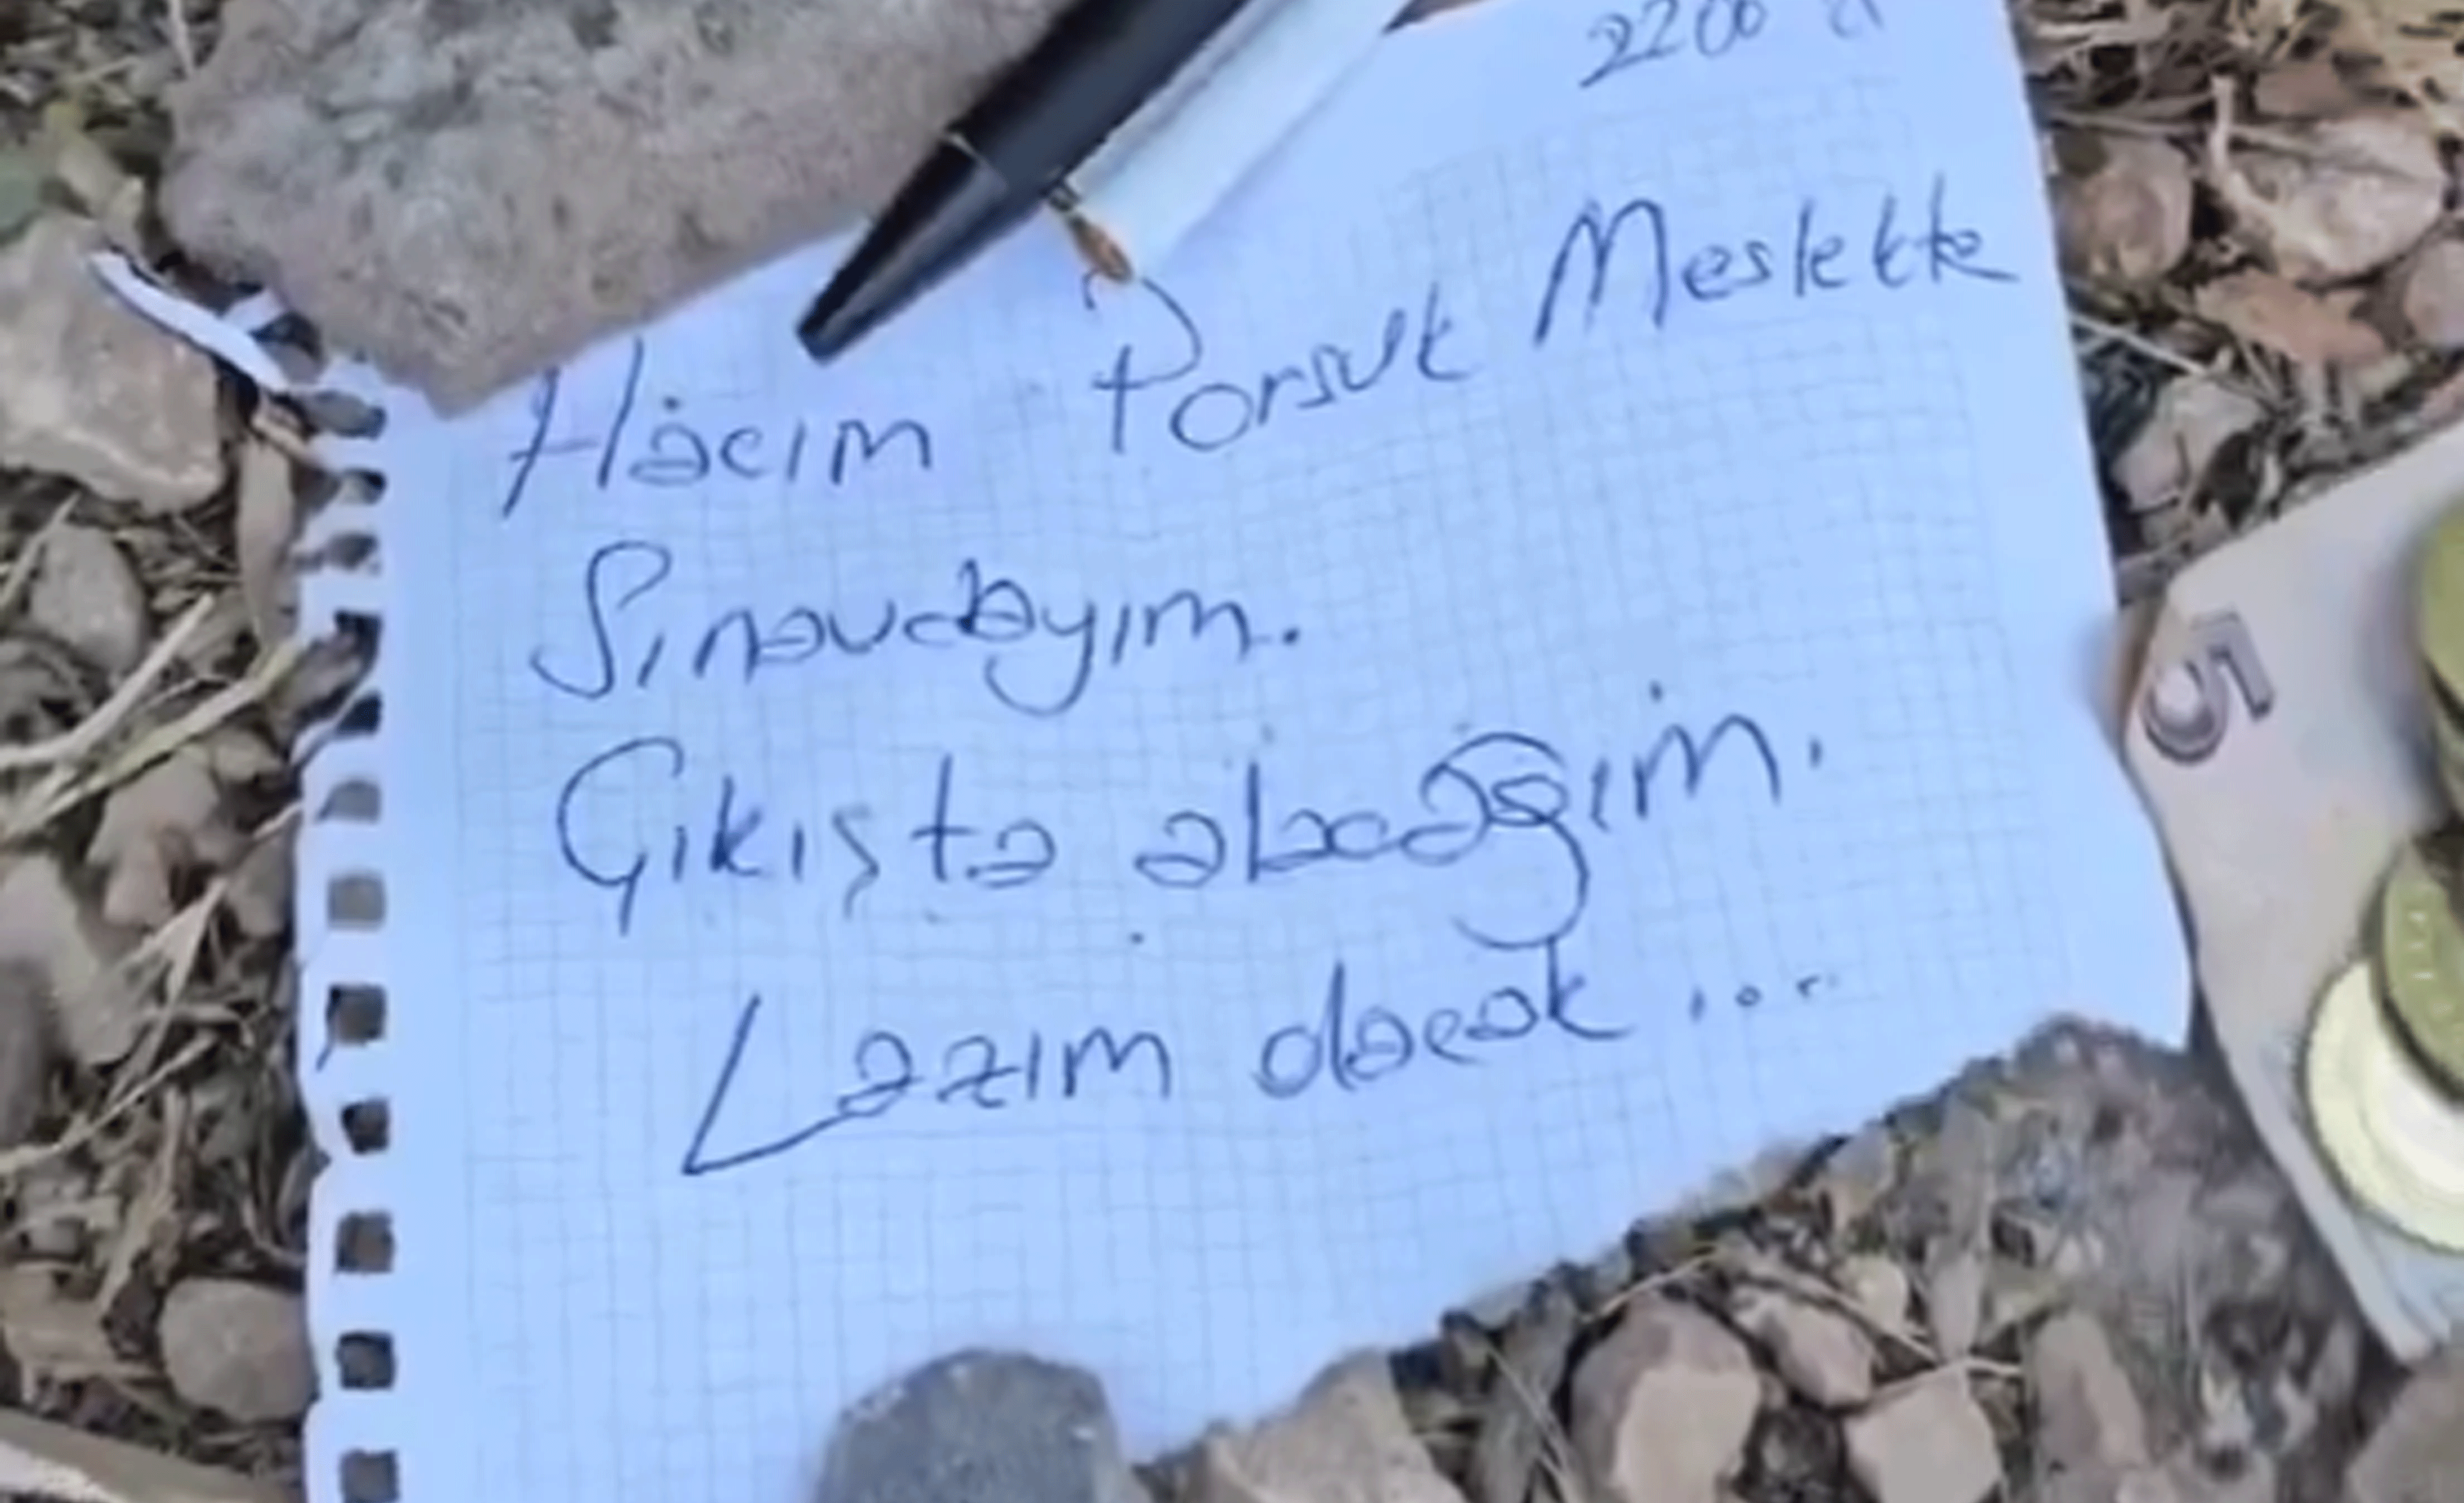 Hacım Porsuk Meslekte
Sınavdayım.
Çıkışta alacağım.
Lazım olacak...
5